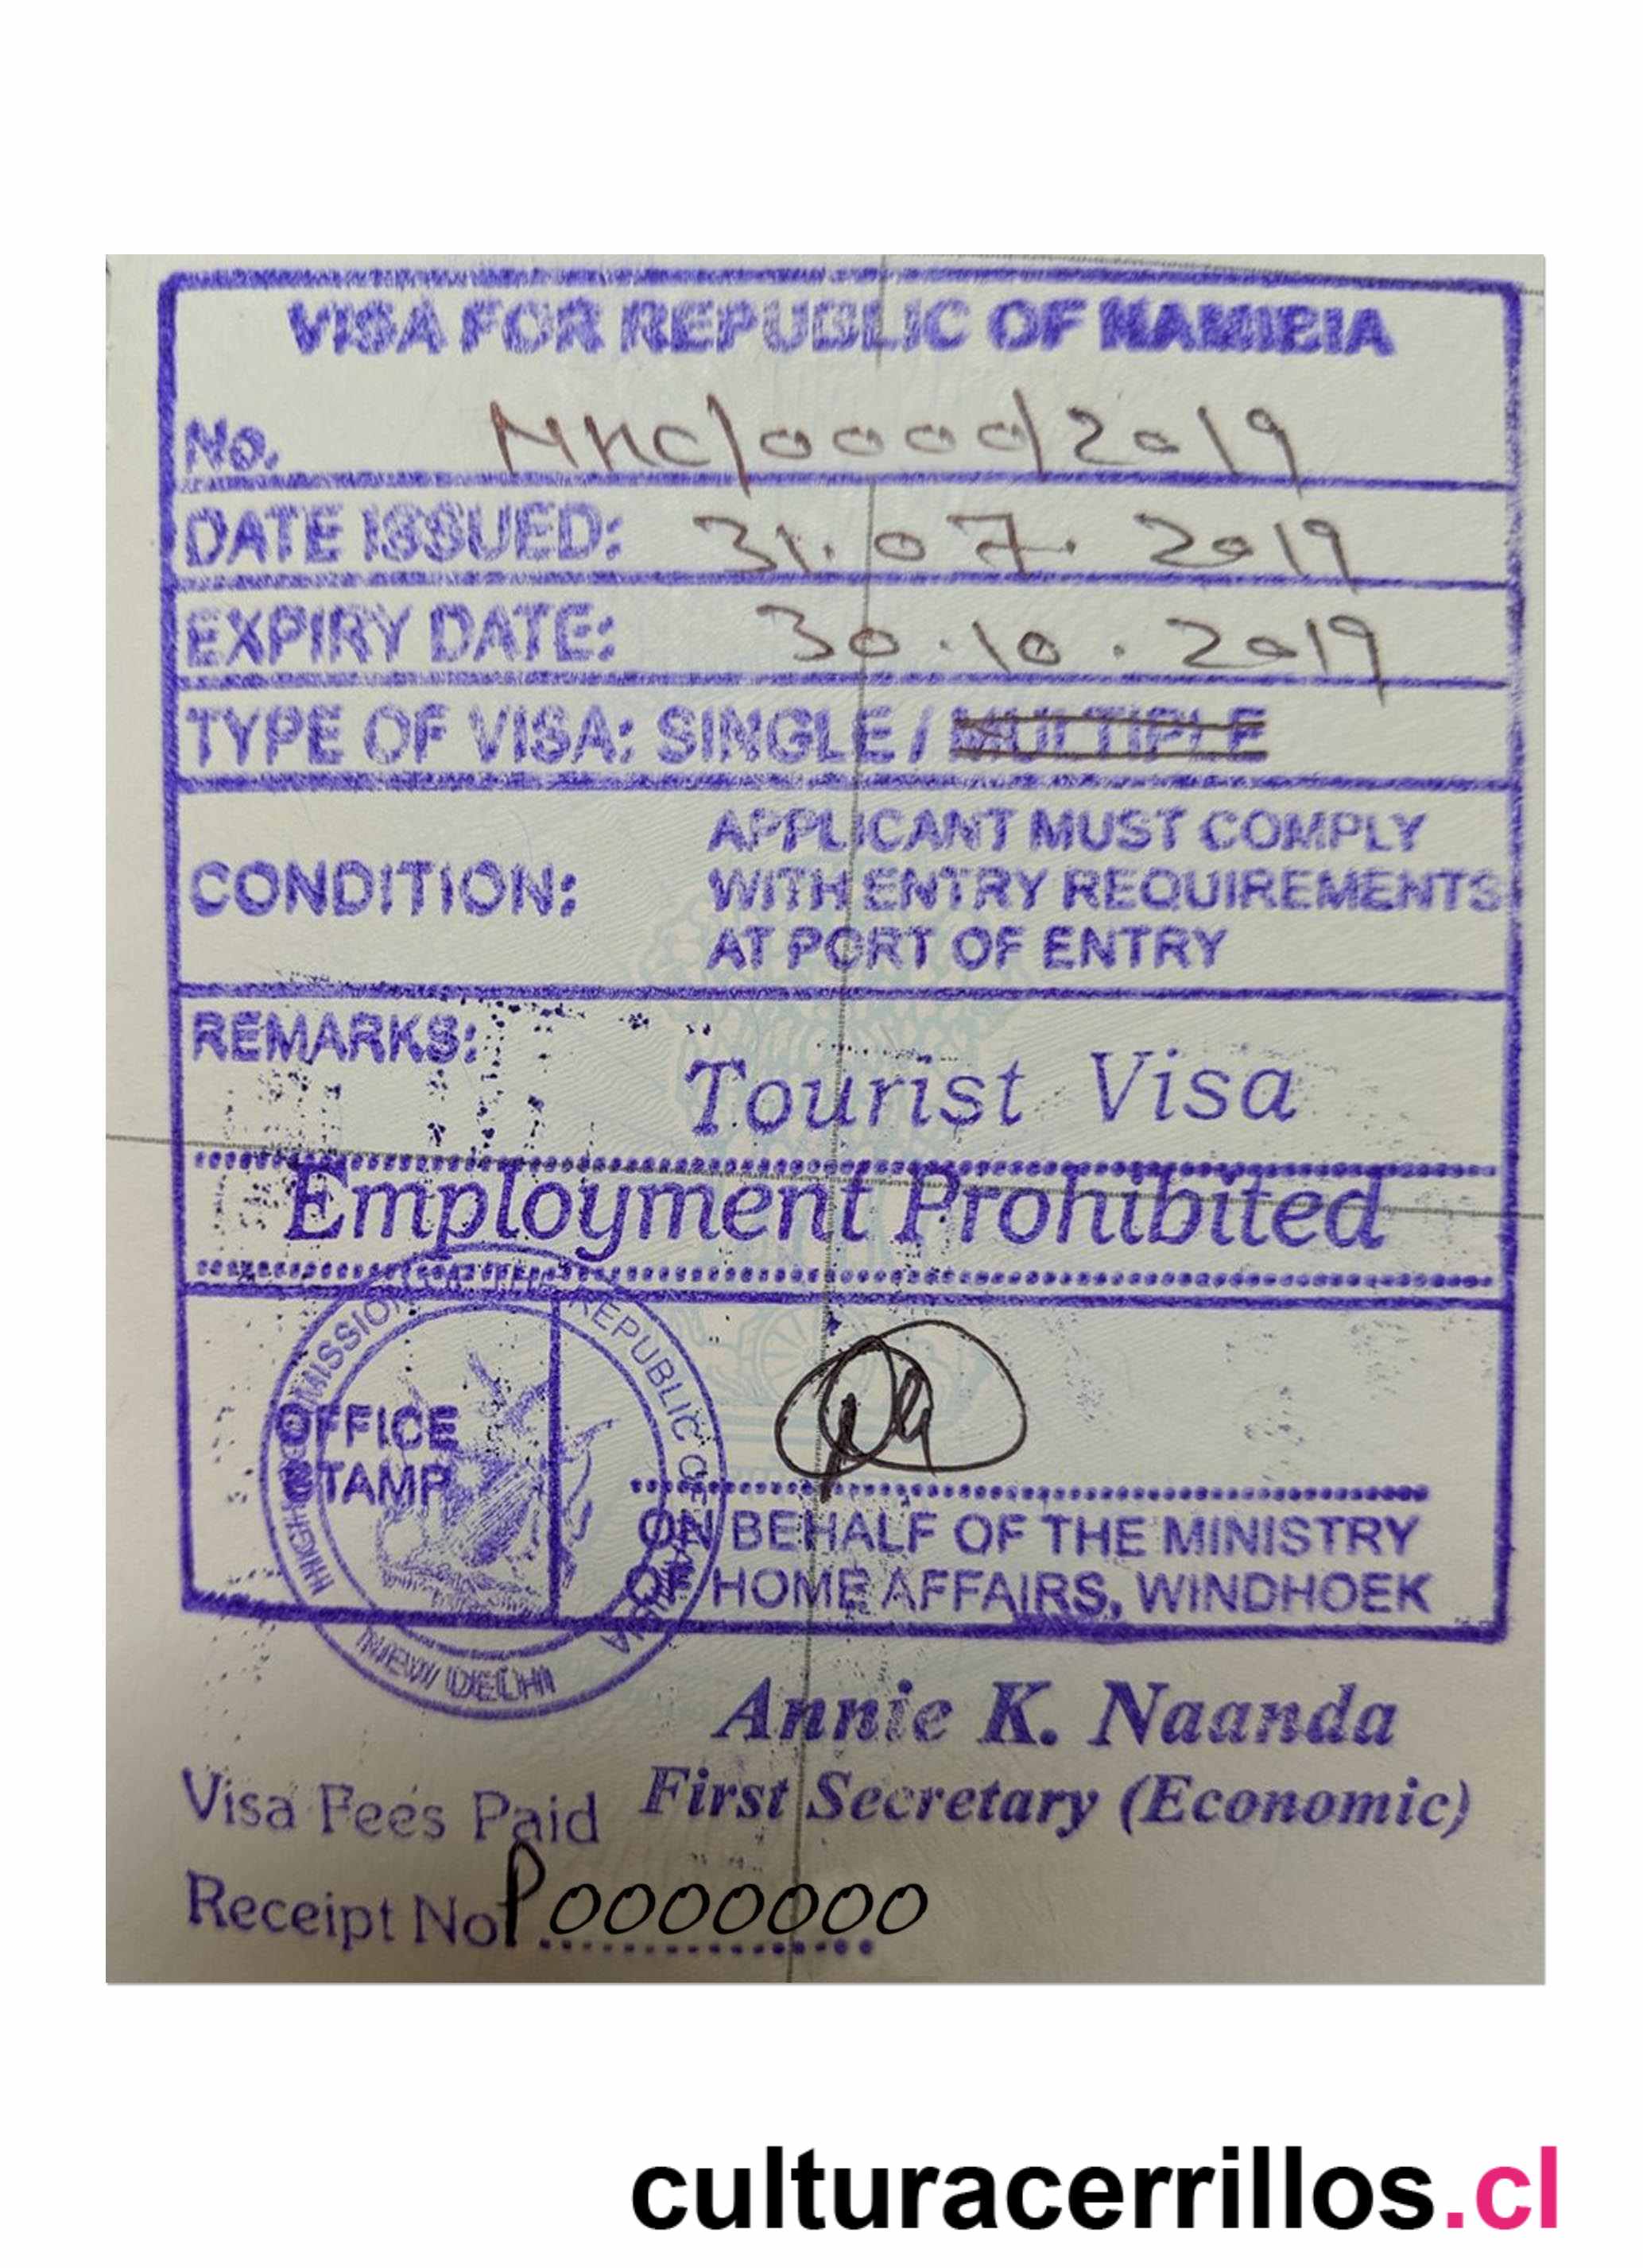 VISA FOR REPUBLIC OF NAMIBIA
No. NHC/0000/2019
DATE ISSUED: 31.07.2019
EXPIRY DATE: 30.10.2019
TYPE OF VISA: SINGLE / MULTIPLE
CONDITION: APPLICANT MUST COMPLY
WITH ENTRY REQUIREMENTS
AT PORT OF ENTRY
REMARKS: Tourist Visa
Employment Prohibited
HIGH COMMISSION OF THE REPUBLIC OF NAMIBIA
NEW DELHI
OFFICE
STAMP
ON BEHALF OF THE MINISTRY
OF HOME AFFAIRS, WINDHOEK
Annie K. Naanda
First Secretary (Economic)
Visa Fees Paid
Receipt No P0000000
culturacerrillos.cl